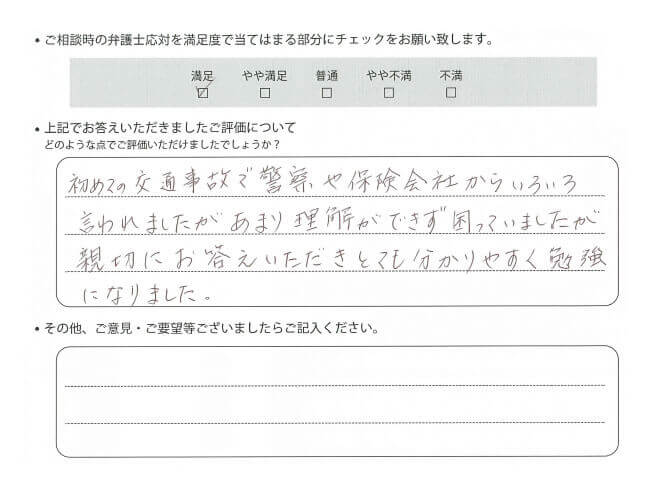 • ご相談時の弁護士応対を満足度で当てはまる部分にチェックをお願い致します。
満足 やや満足 普通 やや不満 不満
☑ □ □ □ □
• 上記でお答えいただきましたご評価について
どのような点でご評価いただけましたでしょうか？
初めての交通事故で警察や保険会社からいろいろ
言われましたがあまり理解ができず困っていましたが
親切にお答えいただきとても分かりやすく勉強
になりました。
• その他、ご意見・ご要望等ございましたらご記入ください。